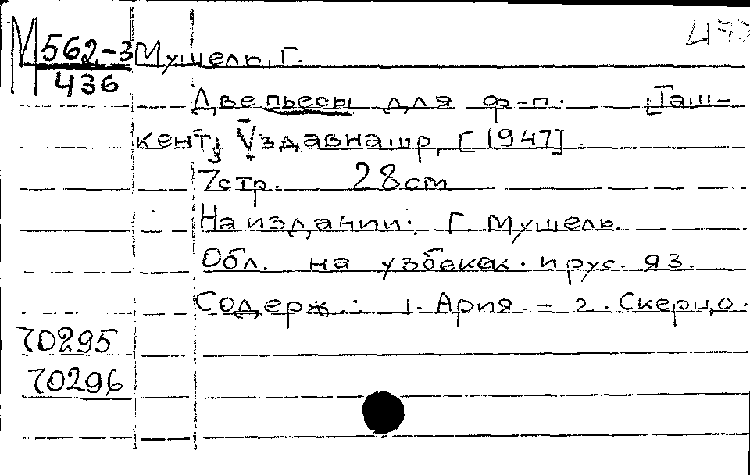 М 562-3 Мушель, Г.
436
Две пьесы для ф-п. [Таш-
кент] Ўздавнашр, [1947]
7стр. 28cm
На издании: Г. Мушель.
Обл. на узбекск. и рус. яз.
Содерж.: 1. Ария – 2. Скерцо.
70295
70296